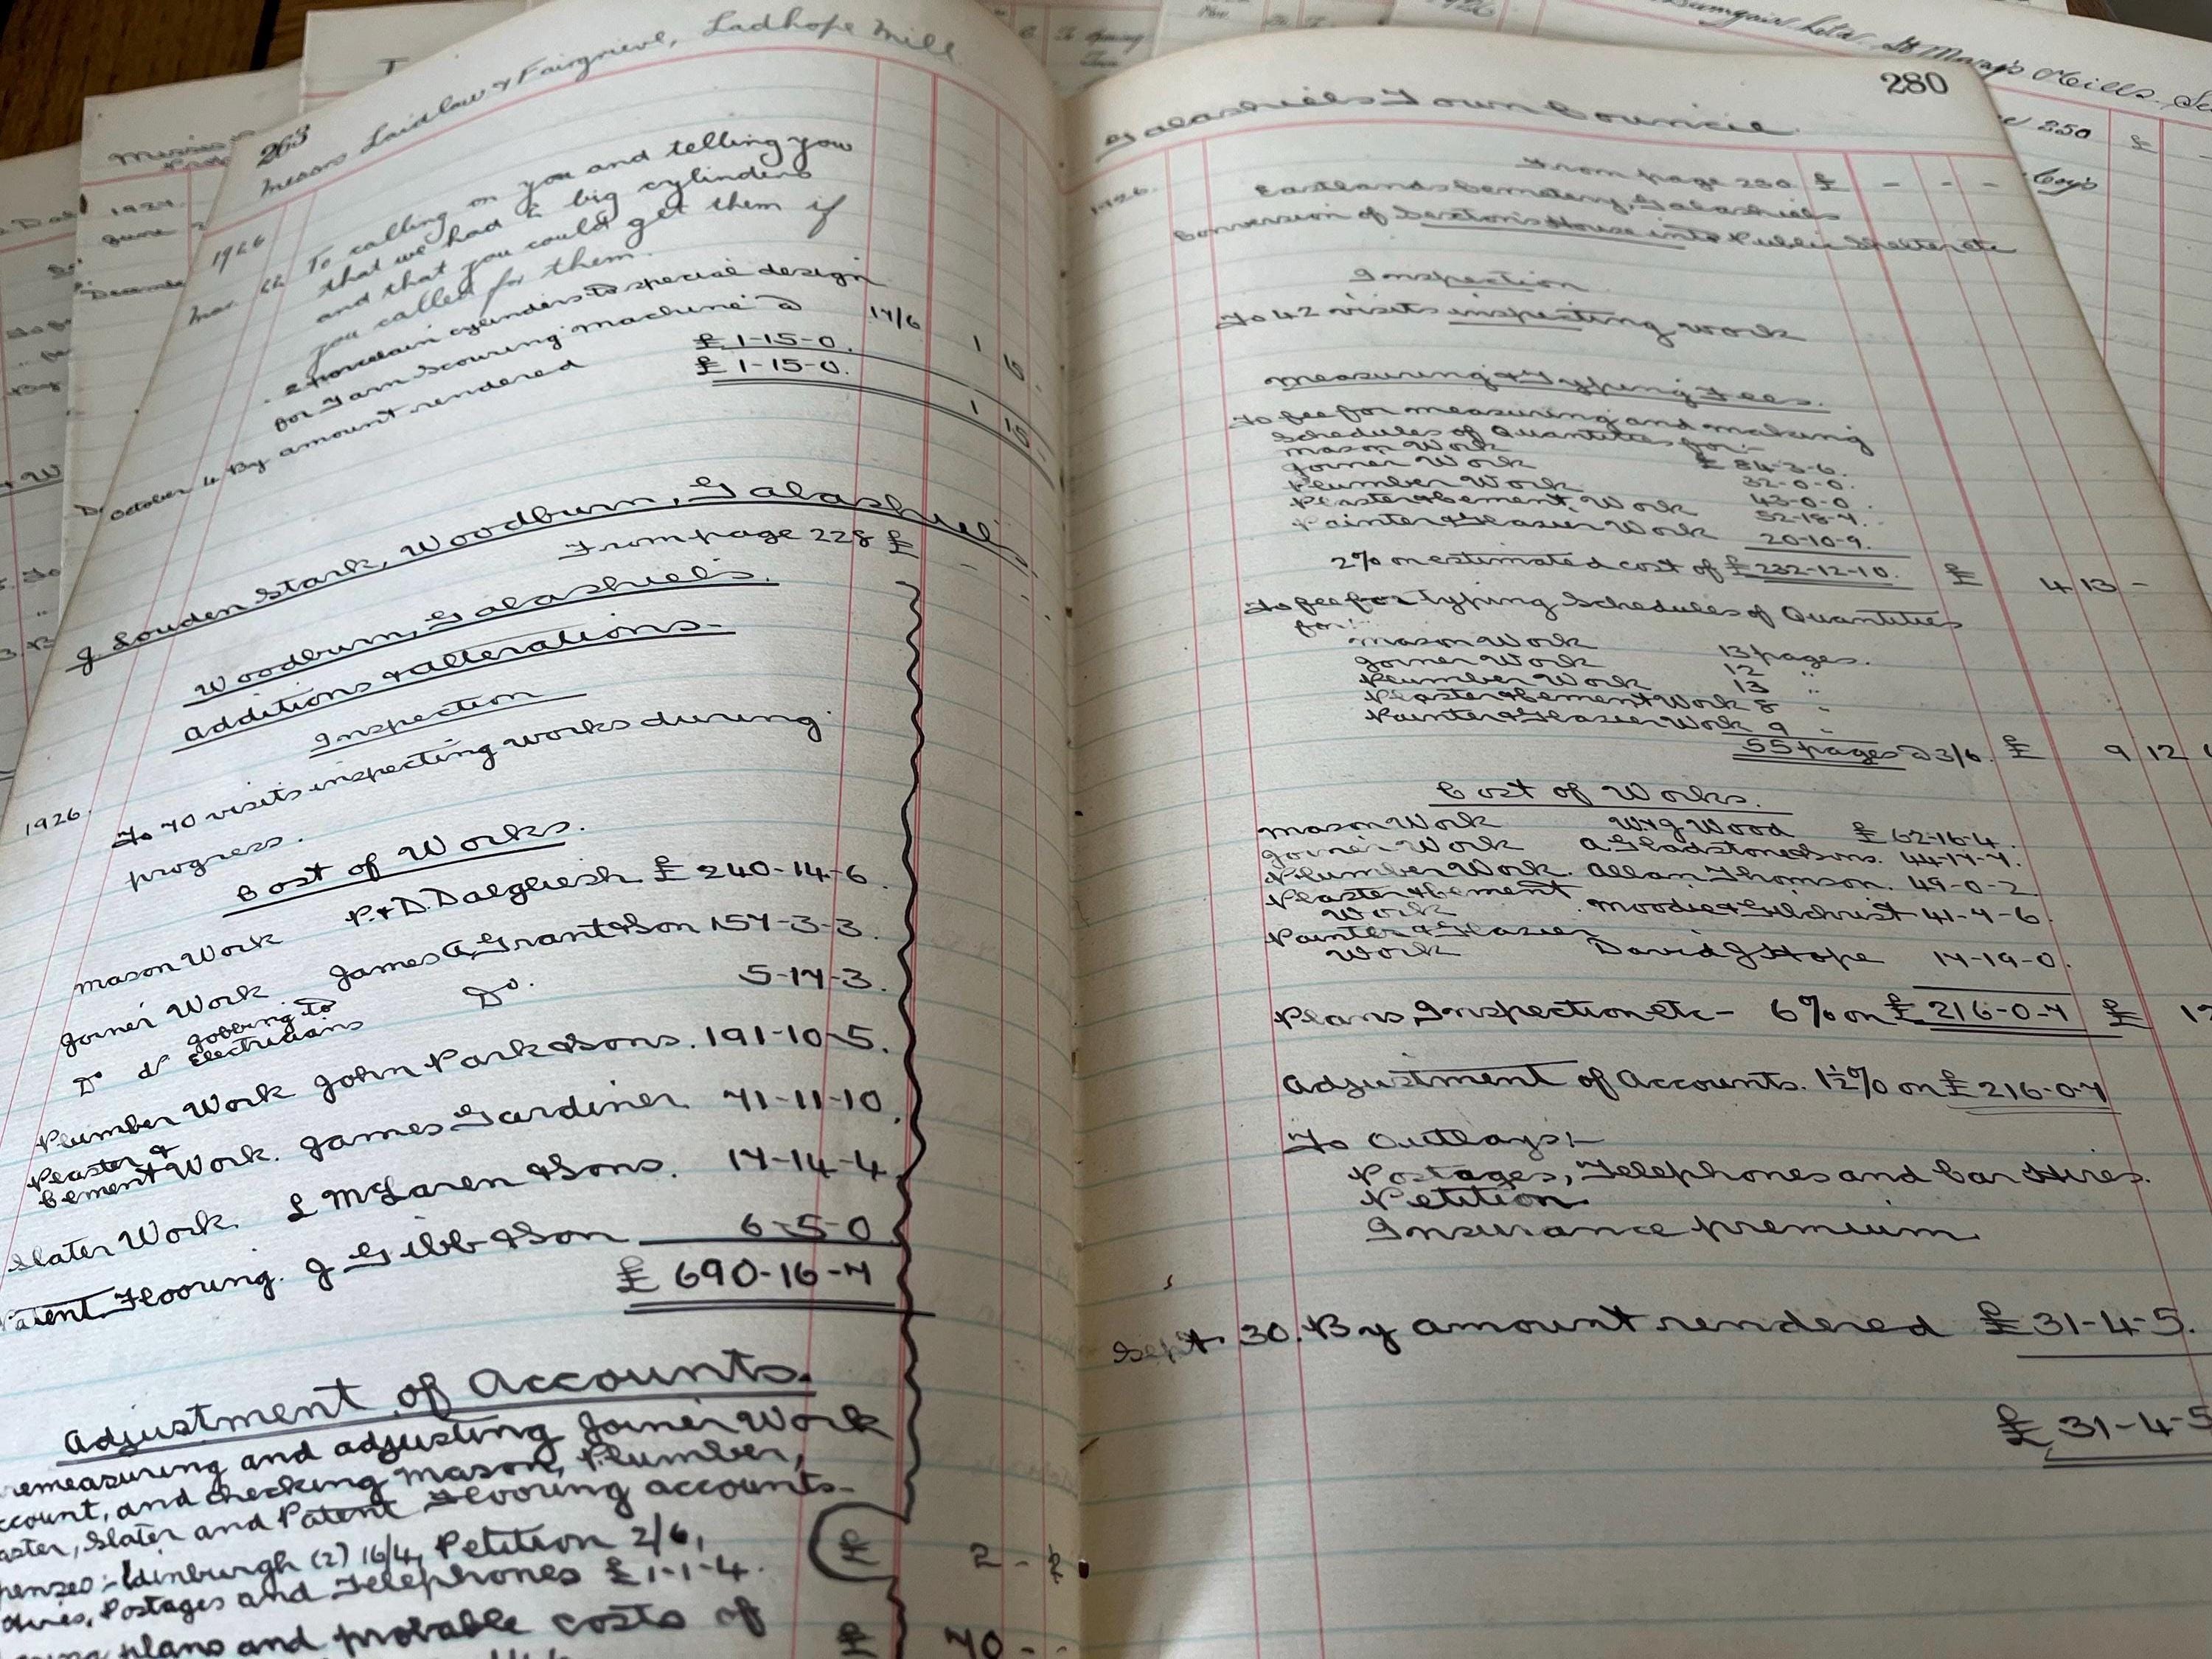 263
Messrs Laidlaw & Fairgrieve, Ladhope Mill
1926
Mar. 22 To calling on you and telling you
that we had 2 big cylinders
and that you could get them if
you called for them.
2 Porcelain cylinders to special design
for Yarn Scouring Machine @ 17/6 1 15 -
£ 1-15-0. 1 15 -
October 4 By amount rendered £ 1-15-0.
J Louden Stark, Woodburn, Galashiels
From page 228 £ - - -
Woodburn, Galashiels.
Additions & Alterations.
Inspection
1926.
To 70 visits inspecting works during
progress.
Cost of Works.
Mason Work P. & D. Dalgliesh £ 240-14-6.
Joiner Work James A. Grant & Son 157-3-3.
Do do Jobbing to
Electricians Do. 5-17-3.
Plumber Work John Park & Sons. 191-10-5.
Plaster &
Cement Work. James Gardiner 71-11-10.
Slater Work. L McLaren & Sons. 17-14-4.
Patent Flooring. J Gibb & Son 6-5-0
£ 690-16-7
Adjustment of Accounts.
remeasuring and adjusting Joiner Work
ccount, and checking Mason, Plumber,
aster, Slater and Patent Flooring accounts-
penses:- Edinburgh (2) 16/4, Petition 2/6,
Hires, Postages and Telephones £1-1-4. £ 2 - -
plans and probable costs of £ 70 - -
280
Galashiels Town Council.
1926.
From page 250 £ - - -
Eastlands Cemetery, Galashiels
Conversion of Sexton's House into Public Shelter etc
Inspection
To 42 visits inspecting work
Measuring & Typing Fees.
To fee for measuring and making
Schedules of Quantities for:-
Mason Work £ 84-3-6.
Joiner Work 32-0-0.
Plumber Work 43-0-0.
Plaster & Cement Work 52-18-7.
Painter & Glazier Work 20-10-9.
2% on estimated cost of £ 232-12-10. £ 4 13 -
To fee for typing Schedules of Quantities
for:-
Mason Work 13 pages.
Joiner Work 12 "
Plumber Work 13 "
Plaster & Cement Work 8 "
Painter & Glazier Work 9 "
55 pages @ 3/6. £ 9 12
Cost of Works.
Mason Work W & J Wood £ 62-16-4.
Joiner Work A. Gladstone & Sons. 44-17-7.
Plumber Work. Allan Thomson. 49-0-2.
Plaster & Cement
Work Moodie & Gilchrist 41-7-6.
Painter & Glazier
Work David J Hope 17-19-0.
Plans, Inspection etc - 6% on £ 216-0-7 £ 12
Adjustment of Accounts. 1½% on £ 216-0-7
To Outlays:-
Postages, Telephones and Car Hires.
Petition
Insurance premium.
Sept. 30. By amount rendered £ 31-4-5.
£ 31-4-5
St Mary's Mills
250 £
1926